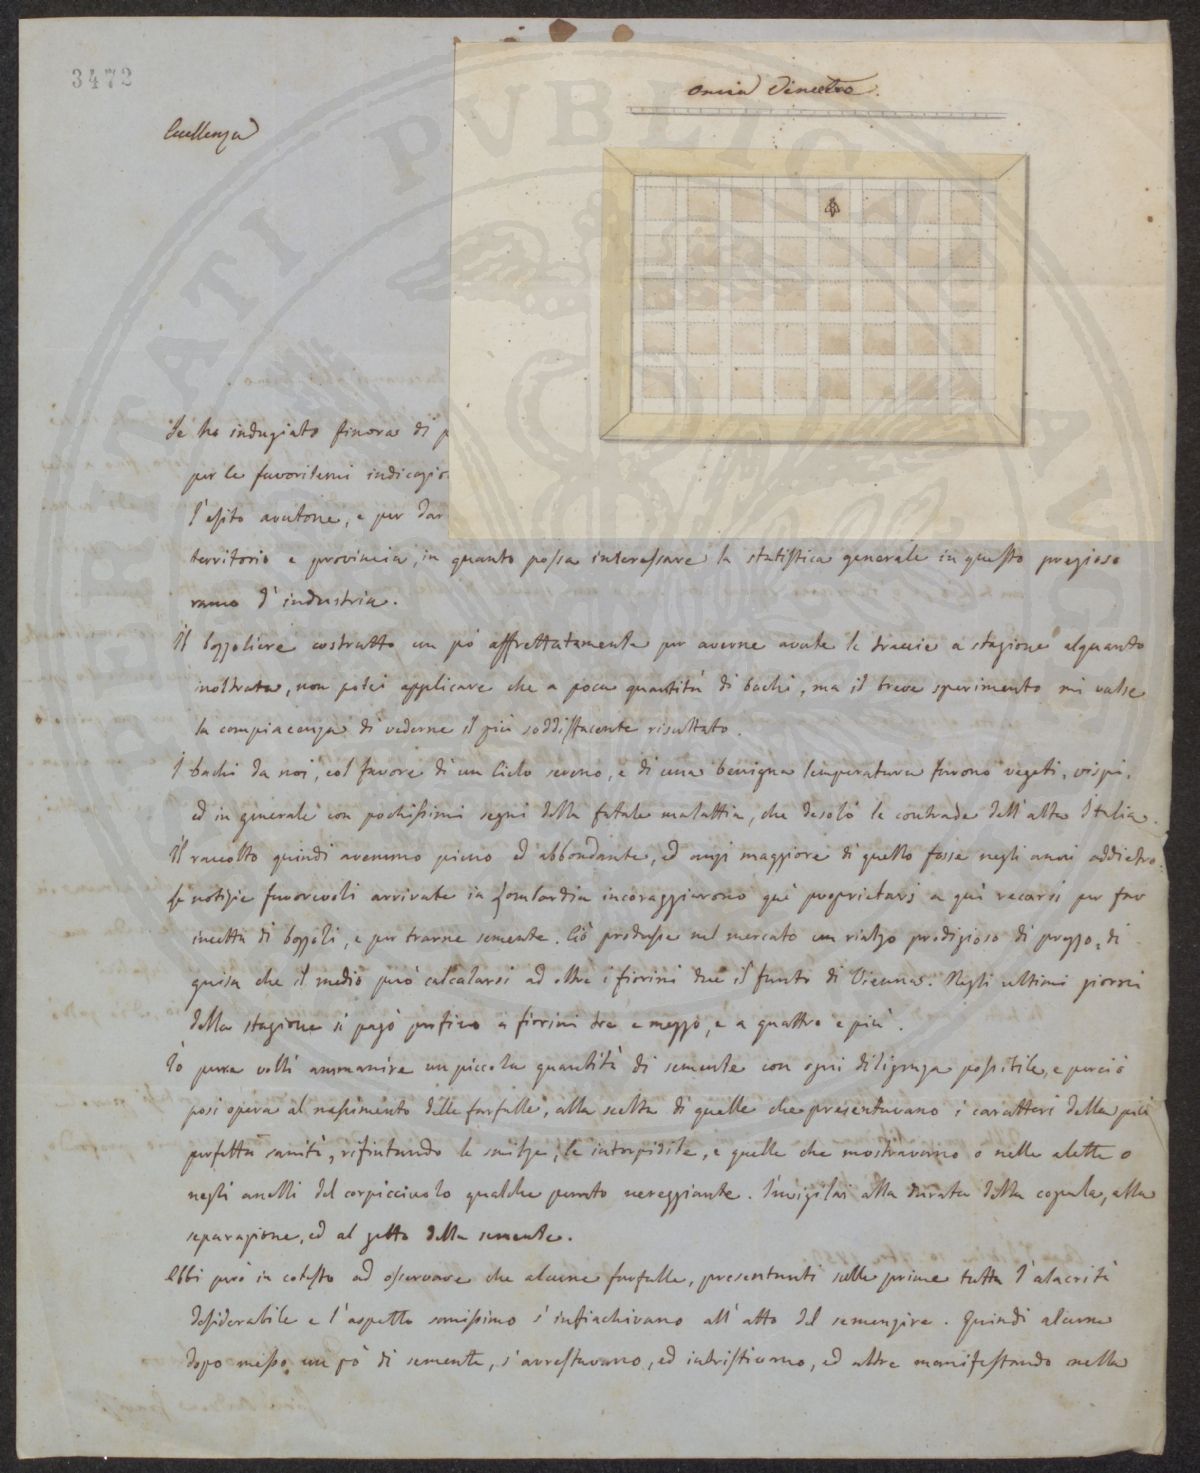 3472
Eccellenza
Se ho indugiato finora di
per le favoritemi indicazio
l'esito avutone, e per dar
territorio e provincia, in quanto possa interessare la statistica generale in questo prezioso
ramo d'industria.
Il bozzoliere costrutto un pò affrettatamente per averne avute le traccie a stagione alquanto
inoltrata, non potei applicare che a poca quantità di bachi, ma il breve sperimento mi valse
la compiacenza di vederne il più soddisfacente risultato.
I bachi da noi, col favore di un Cielo sereno, e di una benigna temperatura furono vegeti, vispi,
ed in generale con pochissimi segni della fatale malattia, che desolò le contrade dell'alta Italia.
Il raccolto quindi avemmo pieno ed abbondante, ed anzi maggiore di quello fosse negli anni addietro.
Le notizie favorevoli arrivate in Lombardia incoraggiarono que' proprietarj a quì recarsi per far
incetta di bozzoli, e per trarne semente. Ciò produsse nel mercato un rialzo prodigioso di prezzo, di
guisa che il medio può calcolarsi ad oltre i fiorini due il funto di Vienna. Negli ultimi giorni
della stagione si pagò perfino a fiorini tre e mezzo, e a quattro e più.
Io pure volli ammanire una piccola quantità di semente con ogni diligenza possibile, e perciò
posi opera al nascimento delle farfalle, alla scelta di quelle che presentavano i caratteri della più
perfetta sanità, rifiutando le scialbe, le intorpidite, e quelle che mostravano o nelle alette o
negli anelli del corpicciuolo qualche punto nereggiante. Invigilai alla durata della copula, alla
separazione, ed al getto della semente.
Ebbi però in cotesto ad osservare che alcune farfalle, presentanti sulle prime tutta l'alacrità
desiderabile e l'aspetto sanissimo s'infiachivano all'atto del semengire. Quindi alcune
dopo messo un pò di semente, s'arrestavano, ed intristivano, ed altre manifestando nella